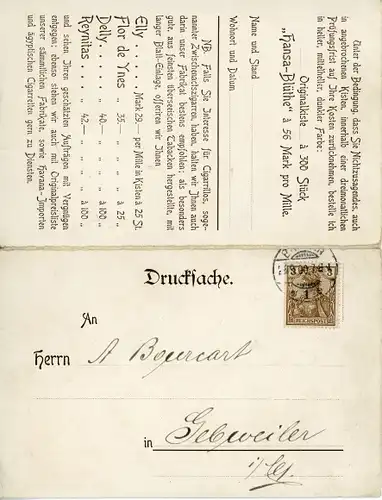 Unter der Bedingung, dass Sie Nichtzusagendes, auch
in angebrochenen Kisten, innerhalb einer dreimonatlichen
Prüfungsfrist auf Ihre Kosten zurücknehmen, bestelle ich
in heller, mittelheller, dunkler Farbe:
Originalkiste à 300 Stück
„Hansa-Blüthe“ à 56 Mark pro Mille.
Name und Stand
Wohnort und Datum
NB. Falls Sie Interesse für Cigarrillos, soge-
nannte Zwischenaktszigarren, haben, halten wir Ihnen auch
darin unser Fabrikat bestens empfohlen; als besonders
gute, aus feinsten überseeischen Tabacken hergestellte, mit
langer Blatt-Einlage, offeriren wir Ihnen
Elly . . . . . Mark 29.— per Mille in Kisten à 25 St.
Flor de Ynes „ 35.— „ „ „ „ à 25 „
Delly . . . . „ 40.— „ „ „ „ à 100 „
Reynitas. . . „ 42.— „ „ „ „ à 100 „
und sehen Ihren geschätzten Aufträgen mit Vergnügen
entgegen; ebenso stehen wir auch mit Originalpreisliste
unserer sämmtlichen Fabrikate, sowie Havana-Importen
und ägyptischen Cigarretten gern zu Diensten.
Drucksache.
An
Herrn A Bourcart
in Gebweiler
i/Els.
REICHSPOST